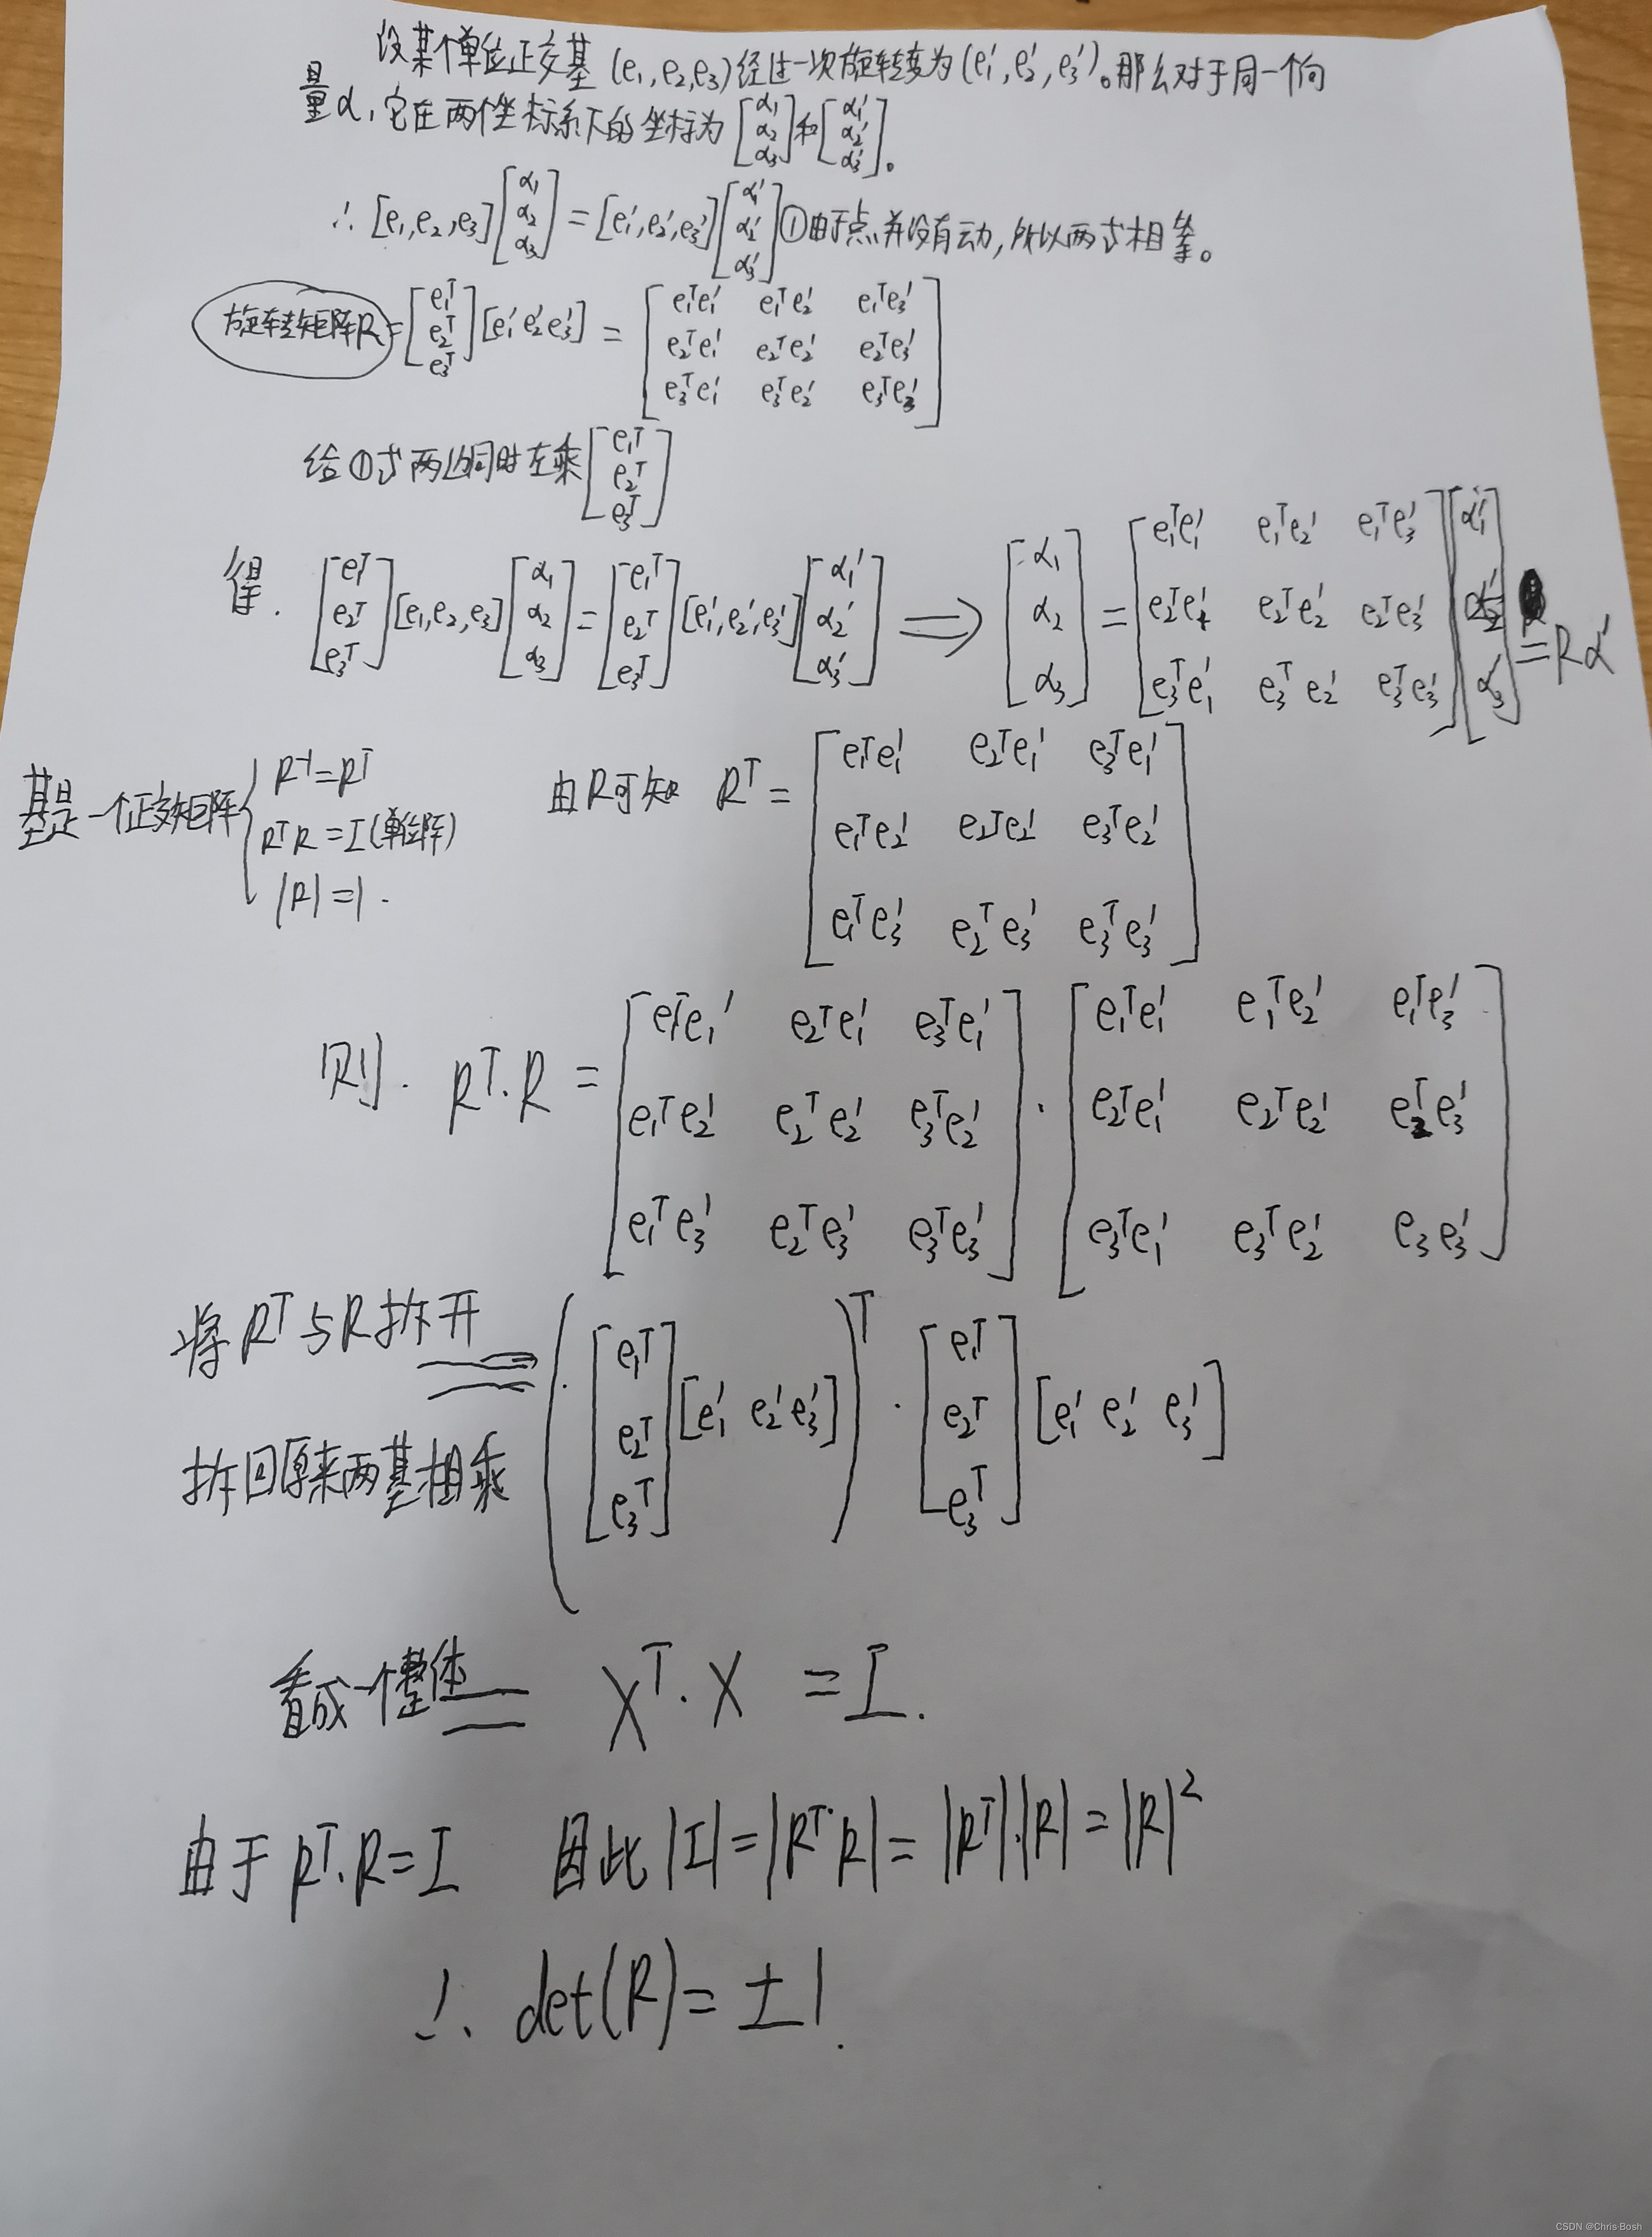 设某个单位正交基(e₁,e₂,e₃)经过一次旋转变为(e₁′,e₂′,e₃′)。那么对于同一个向
量α,它在两个坐标系下的坐标为[α₁ α₂ α₃]和[α₁′ α₂′ α₃′]。
∴ [e₁,e₂,e₃][α₁ α₂ α₃] = [e₁′,e₂′,e₃′][α₁′ α₂′ α₃′] ①由于点并没有动,所以两式相等。
旋转矩阵R = [e₁ᵀ e₂ᵀ e₃ᵀ][e₁′ e₂′ e₃′] = [e₁ᵀe₁′ e₁ᵀe₂′ e₁ᵀe₃′
e₂ᵀe₁′ e₂ᵀe₂′ e₂ᵀe₃′
e₃ᵀe₁′ e₃ᵀe₂′ e₃ᵀe₃′]
给①式两边同时左乘[e₁ᵀ e₂ᵀ e₃ᵀ]
得. [e₁ᵀ e₂ᵀ e₃ᵀ][e₁,e₂,e₃][α₁ α₂ α₃] = [e₁ᵀ e₂ᵀ e₃ᵀ][e₁′,e₂′,e₃′][α₁′ α₂′ α₃′] ⟹ [α₁ α₂ α₃] = [e₁ᵀe₁′ e₁ᵀe₂′ e₁ᵀe₃′
e₂ᵀe₁′ e₂ᵀe₂′ e₂ᵀe₃′
e₃ᵀe₁′ e₃ᵀe₂′ e₃ᵀe₃′][α₁′ α₂′ α₃′] = Rα′
基是一个正交矩阵{ R⁻¹=Rᵀ
RᵀR=I(单位阵)
|R|=1.
由R可知 Rᵀ = [e₁ᵀe₁′ e₂ᵀe₁′ e₃ᵀe₁′
e₁ᵀe₂′ e₂ᵀe₂′ e₃ᵀe₂′
e₁ᵀe₃′ e₂ᵀe₃′ e₃ᵀe₃′]
则. Rᵀ·R = [e₁ᵀe₁′ e₂ᵀe₁′ e₃ᵀe₁′
e₁ᵀe₂′ e₂ᵀe₂′ e₃ᵀe₂′
e₁ᵀe₃′ e₂ᵀe₃′ e₃ᵀe₃′] · [e₁ᵀe₁′ e₁ᵀe₂′ e₁ᵀe₃′
e₂ᵀe₁′ e₂ᵀe₂′ e₂ᵀe₃′
e₃ᵀe₁′ e₃ᵀe₂′ e₃e₃′]
将Rᵀ与R拆开
拆回原来两基相乘
= ([e₁ᵀ e₂ᵀ e₃ᵀ][e₁′ e₂′ e₃′])ᵀ · [e₁ᵀ e₂ᵀ e₃ᵀ][e₁′ e₂′ e₃′]
看成一个整体 = Xᵀ·X = I.
由于Rᵀ·R=I 因此|I|=|Rᵀ·R|=|Rᵀ|·|R|=|R|²
∴ det(R)=±1.
CSDN @Chris·Bosh